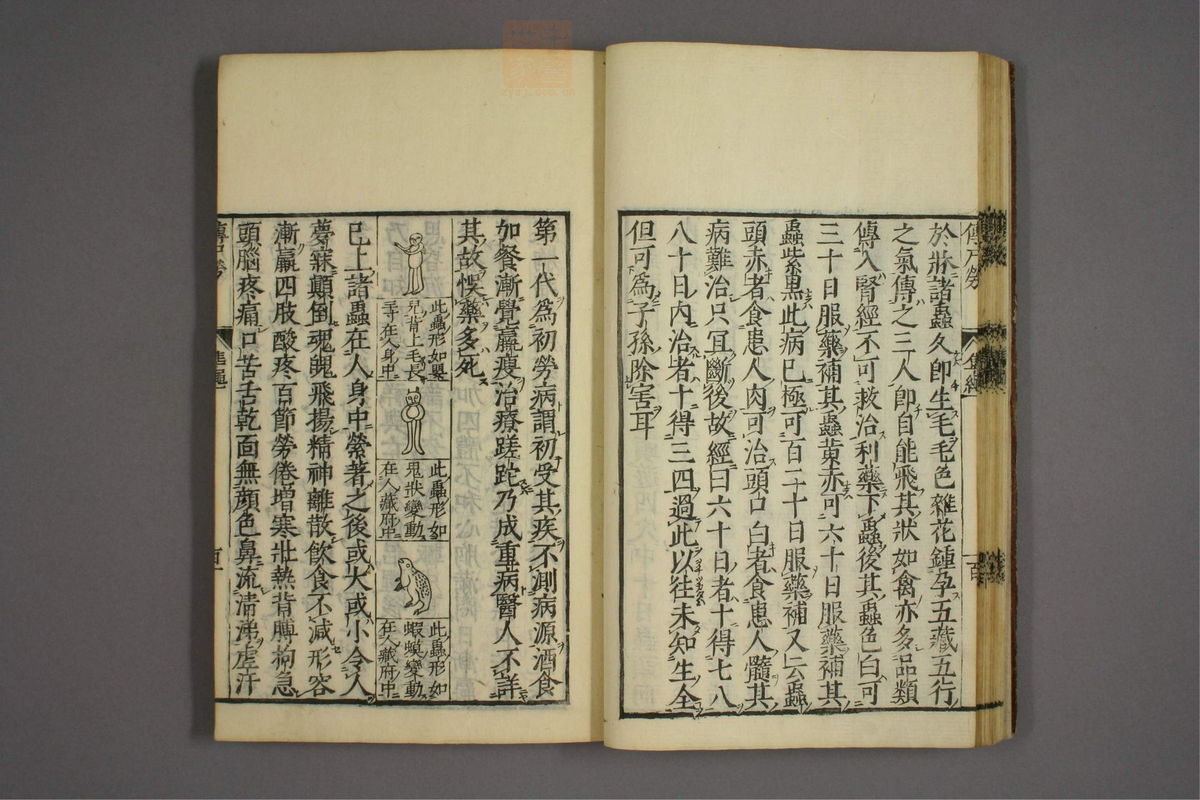 於牀諸蟲久即生毛毛色雜花鍾孕五藏五行
之氣傳之三人即自能飛其狀如禽亦多品類
傳入腎經不可救治利藥下蟲後其蟲色白可
三十日服藥補其蟲黃赤可六十日服藥補其
蟲紫黑此病已極可百二十日服藥補又云蟲
頭赤者食患人肉可治頭口白者食患人髓其
病難治只冝斷後故經曰六十日者十得七八
八十日內治者十得三四過此以往未知生全
但可爲子孫除害耳
第一代爲初勞病謂初受其疾不測病源酒食
加餐漸覺羸瘦治療蹉跎乃成重病醫人不詳
其故悞藥多死
此蟲形如嬰
兒背上毛長
三寸在人身中
此蟲形如
鬼狀變動
在人藏府中
此蟲形如
蝦蟆變動
在人藏府中
已上諸蟲在人身中縈著之後或大或小令人
夢寐顛倒魂魄飛揚精神離散飲食不減形容
漸羸四肢酸疼百節勞倦增寒壯熱背膊拘急
頭腦疼痛口苦舌乾面無顏色鼻流清涕虛汗